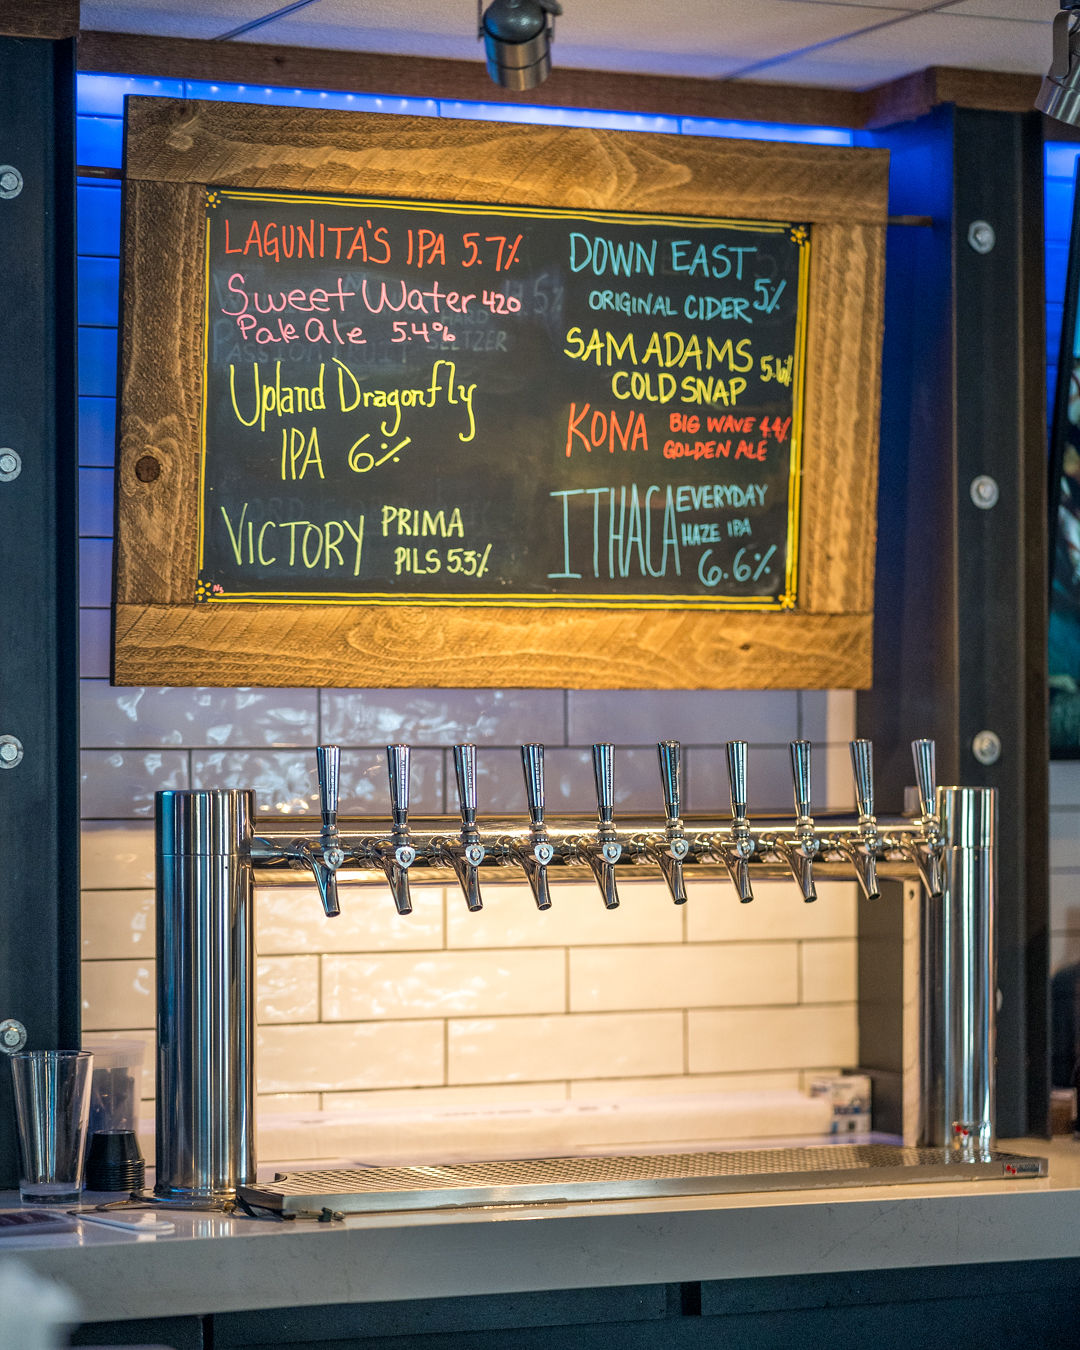 LAGUNITA'S IPA 5.7%
Sweet Water 420
Pale Ale 5.4%
Upland Dragonfly
IPA 6%
VICTORY PRIMA
PILS 5.3%
DOWN EAST
ORIGINAL CIDER 5%
SAM ADAMS
COLD SNAP 5.6%
KONA BIG WAVE 4.4%
GOLDEN ALE
ITHACA EVERYDAY
HAZE IPA
6.6%